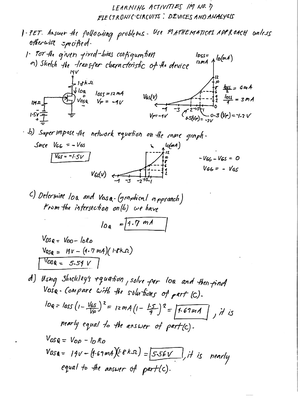 LEARNING ACTIVITIES IM NO. 7
ELECTRONIC CIRCUITS: DEVICES AND ANALYSIS
1. FET. Answer the following problems. Use MATHEMATICS APPROACH unless
otherwise specified.
1. For the given fixed-bias configuration
a) Sketch the transfer characteristic of the device
14V
1.8kΩ
IDQ
VDSQ
IDSS = 12mA
VP = -4V
1MΩ
1.5V
IDSS = 12mA
ID(mA)
IDSS/2 = 6mA
IDSS/4 = 3mA
VGS(V)
VP = -4V
0.5(VP) = -2V
0.3(VP) = -1.2V
b) Superimpose the network equation on the same graph.
Since VGG = -VGS
VGS = -1.5V
ID(mA)
VGS(V)
-VGG - VGS = 0
VGG = - VGS
c) Determine IDQ and VDSQ (graphical approach)
From the intersection (b) we have
IDQ = 4.7 mA
VDSQ = VDD - IDRD
VDSQ = 14V - (4.7 mA)(1.8kΩ)
VDSQ = 5.54 V
d) Using Shockley's equation, solve for IDQ and then find
VDSQ. Compare with the solutions of part (c).
IDQ = IDSS (1 - VGS/VP)² = 12mA (1 - 1.5/4)² = 4.69mA, it is
nearly equal to the answer of part (c).
VDSQ = VDD - IDRD
VDSQ = 14V - (4.69mA)(1.8kΩ) = 5.56V, it is nearly
equal to the answer of part (c).